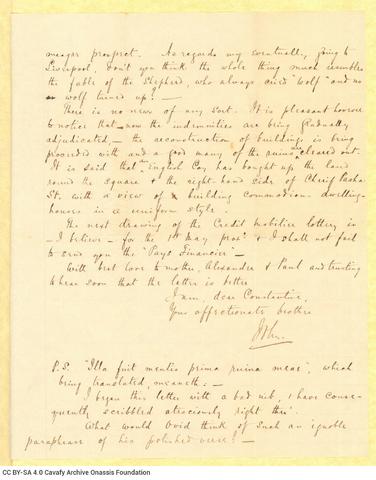 meagre prospect. As regards my eventually going to
Liverpool, don't you think the whole thing much resembles
the fable of the Shepherd, who always cried "Wolf" and no
wolf turned up? —
There is no news of any sort. It is pleasant however
to notice that — now the indemnities are being gradually
adjudicated, — the reconstruction of buildings is being
proceeded with and a good many of the ruins are cleared out.
It is said that an English Coy has bought up the land
round the square & the right hand side of Cherif Pasha
St. with a view of building commodious dwelling-
houses in a uniform style.
The next drawing of the Credit Mobilier lottery is
— I believe — for the 1st May prox° & I shall not fail
to send you the "Pays Financier" —
With best love to mother, Alexandre & Paul and trusting
to hear soon that the latter is better
I am, dear Constantine,
Your affectionate brother
John
P.S. "Illa fuit mentis prima ruina meae", which
being translated, meaneth: —
I began this letter with a bad nib, & have conse-
quently scribbled atrociously right thro'.
What would Ovid think of such an ignoble
paraphrase of his polished verse? —
CC BY-SA 4.0 Cavafy Archive Onassis Foundation